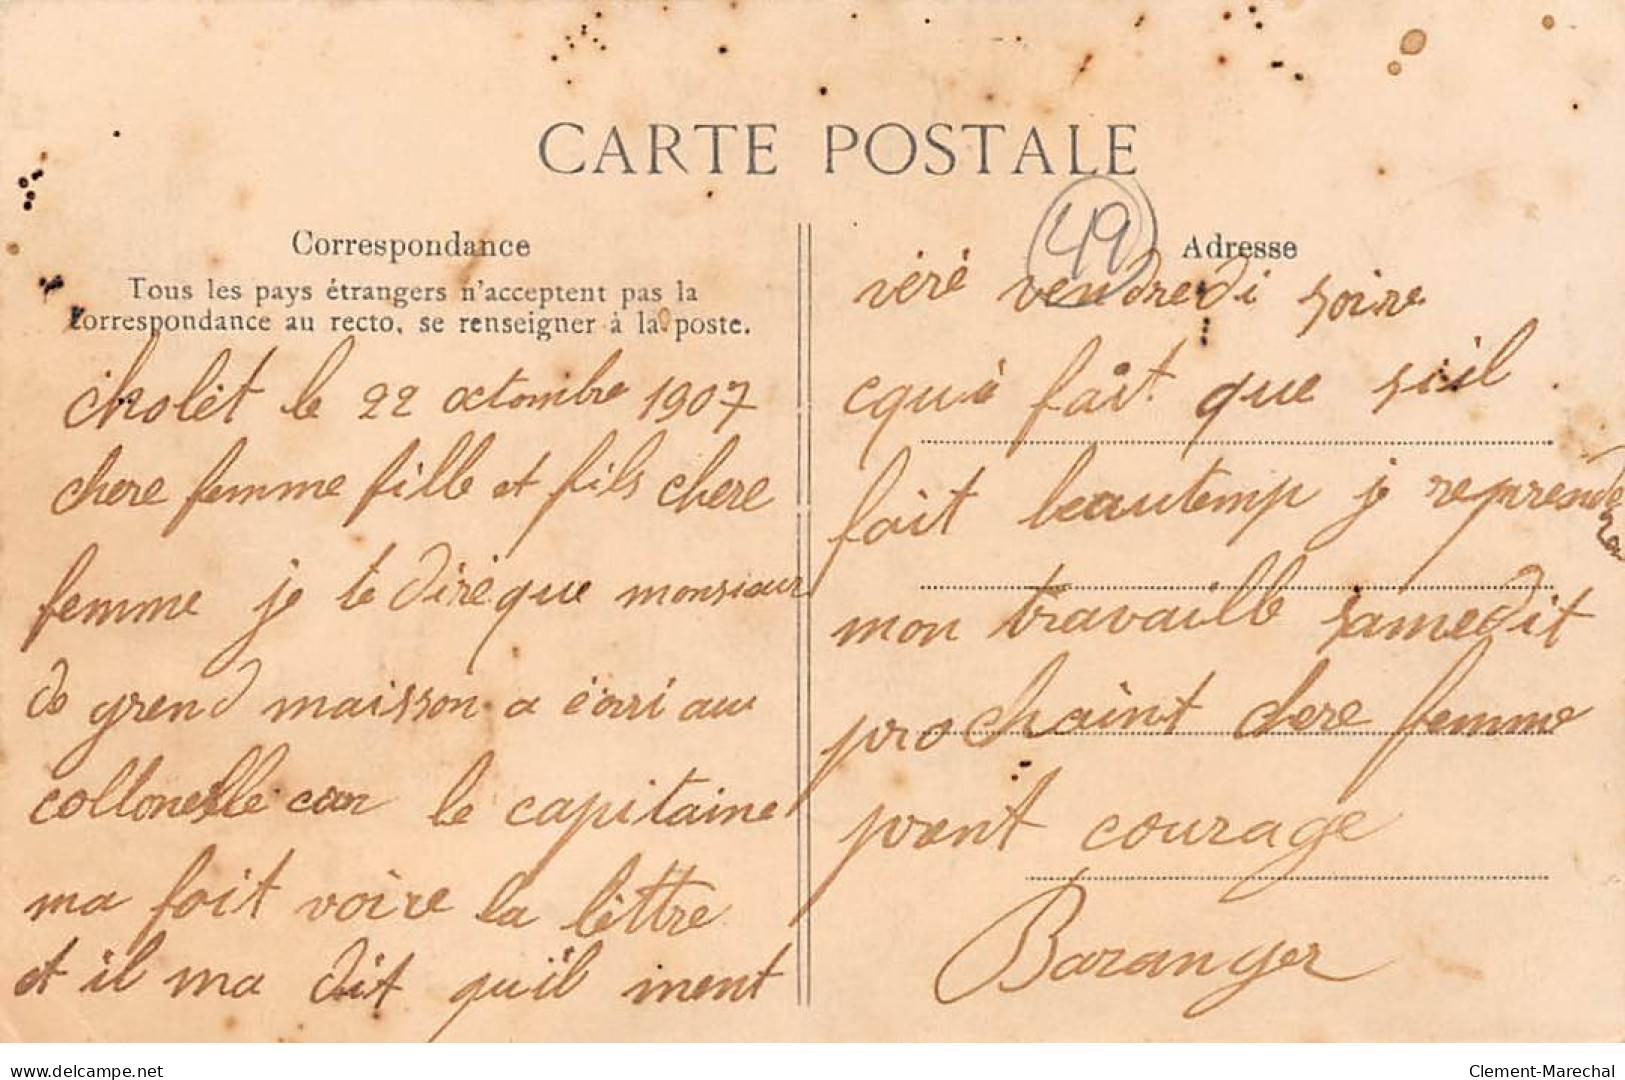 CARTE POSTALE
49
Correspondance
Tous les pays étrangers n'acceptent pas la
correspondance au recto, se renseigner à la poste.
cholèt le 22 octombre 1907
chere femme fille et fils chere
femme je te diré que monsieur
de grend maisson a écrri au
collonelle car le capitaine
ma fait voire la lèttre
et il ma dit quil ment
Adresse
véré vendredi soire
cqui fait que siil
fait beautemp je reprende
mon travaille samedit
prochaint chere femme
prent courage
Baranger
www.delcampe.net
Clement-Marechal